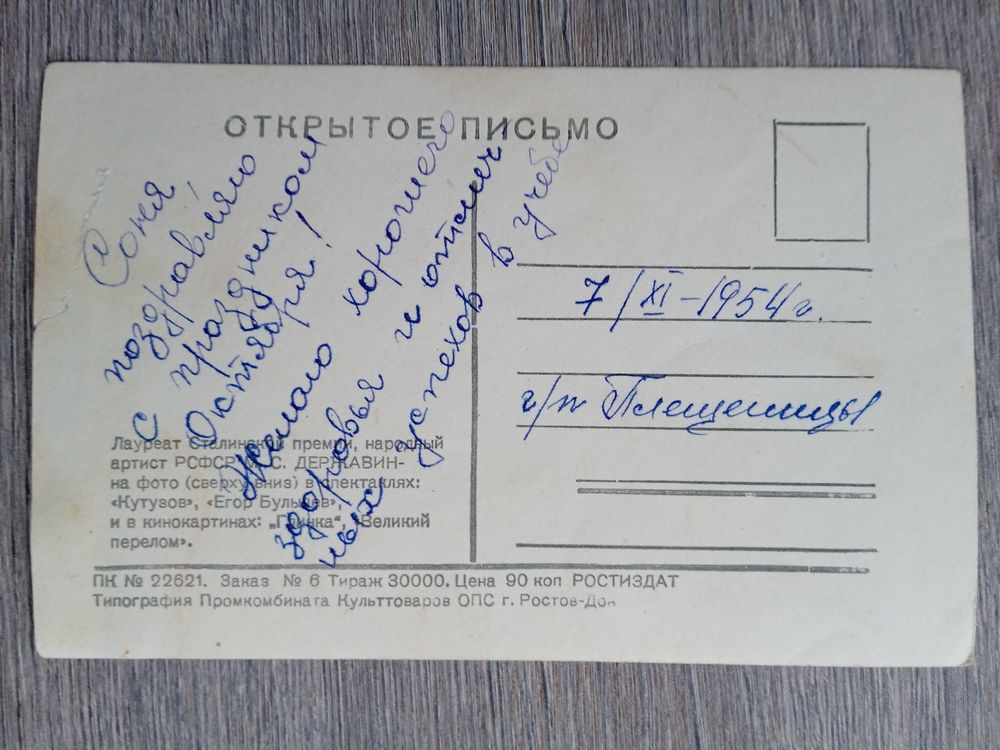 ОТКРЫТОЕ ПИСЬМО
Соня
поздравляю
с праздником
Октября!
Желаю хорошего
здоровья и отлич
ных успехов в учебе
7/XI-1954г.
г/п Плещеницы
Лауреат Сталинской премии, народный
артист РСФСР С. ДЕРЖАВИН-
на фото (сверху вниз) в спектаклях:
«Кутузов», «Егор Булычев»,
и в кинокартинах: „Глинка“, «Великий
перелом».
ПК № 22621. Заказ № 6 Тираж 30000. Цена 90 коп РОСТИЗДАТ
Типография Промкомбината Культтоваров ОПС г. Ростов-Дон